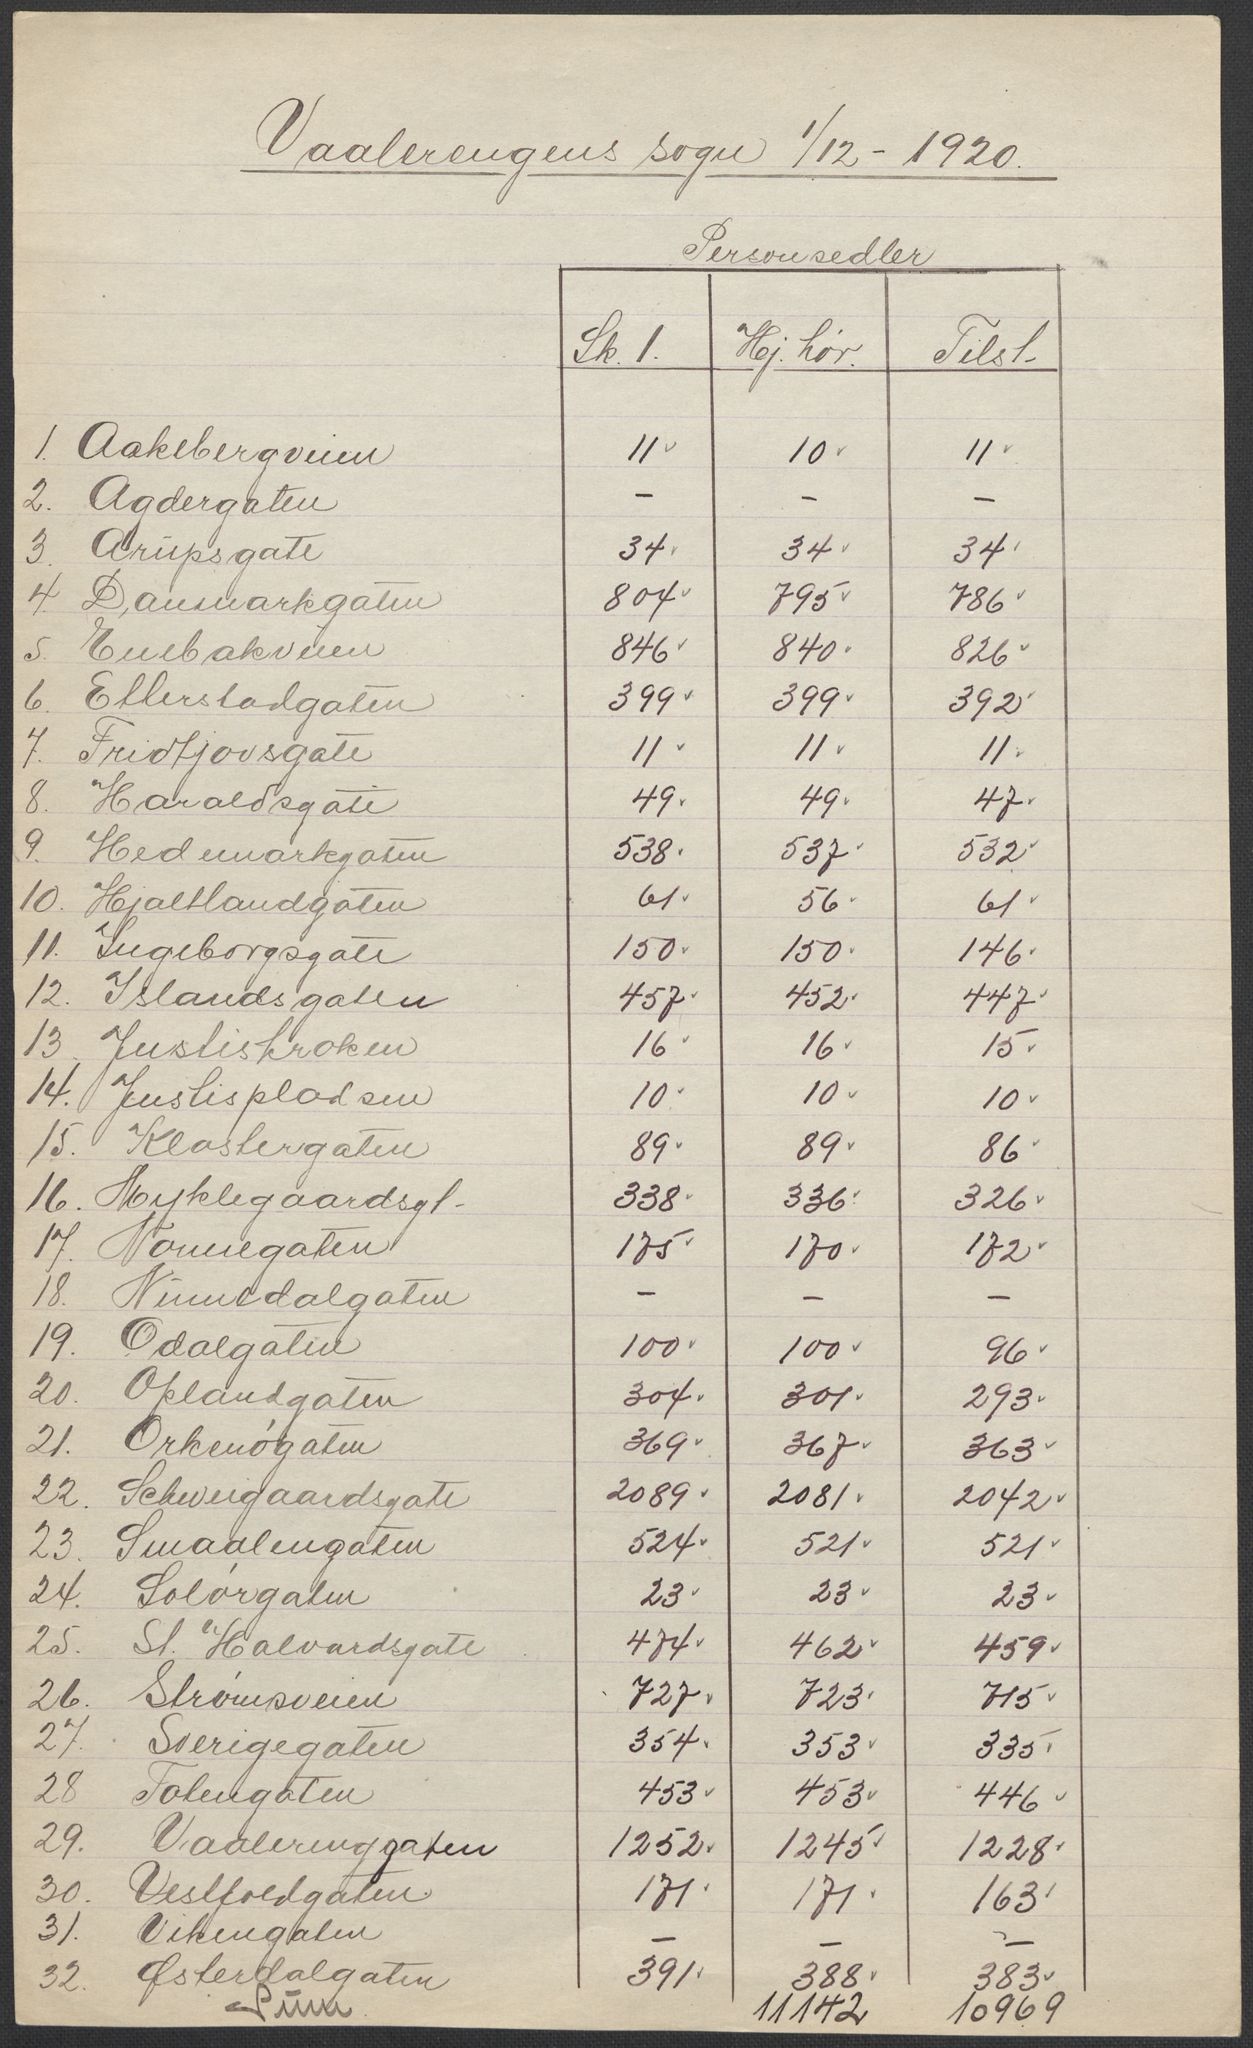 Vaalerengens sogn 1/12 - 1920.
Personsedler
Sk. 1. Hj. hør. Tilst.
1. Aakebergveien 11 10 11
2. Agdergaten - - -
3. Arupsgate 34 34 34
4. Danmarkgaten 804 795 786
5. Enebakveien 846 840 826
6. Etterstadgaten 399 399 392
7. Fridtjovsgate 11 11 11
8. Haraldsgate 49 49 47
9. Hedemarkgaten 538 537 532
10. Hjaltlandgaten 61 56 61
11. Ingeborgsgate 150 150 146
12. Islandsgaten 457 452 447
13. Justiskroken 16 16 15
14. Justispladsen 10 10 10
15. Klostergaten 89 89 86
16. Myklegaardsgt. 338 336 326
17. Nonnegaten 175 170 172
18. Numedalgaten - - -
19. Odalgaten 100 100 96
20. Oplandgaten 304 301 293
21. Orkenøgaten 369 367 363
22. Schweigaardsgate 2089 2081 2042
23. Smaalengaten 524 521 521
24. Solørgaten 23 23 23
25. St. Halvardsgate 474 462 459
26. Strømsveien 727 723 715
27. Sverigegaten 354 353 335
28 Totengaten 453 453 446
29. Vaalerenggaten 1252 1245 1228
30. Vestfoldgaten 171 171 163
31. Vikengaten - - -
32. Østerdalgaten 391 388 383
Sum 11142 10969